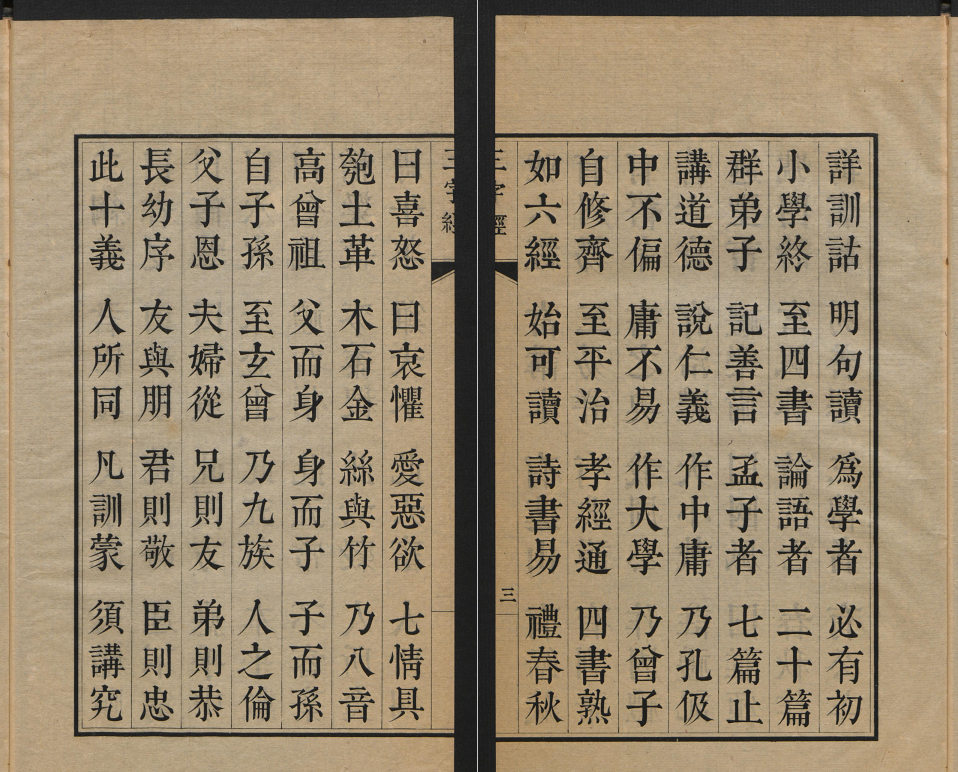 詳訓詁 明句讀 爲學者 必有初
小學終 至四書 論語者 二十篇
群弟子 記善言 孟子者 七篇止
講道德 說仁義 作中庸 乃孔伋
中不偏 庸不易 作大學 乃曾子
自修齊 至平治 孝經通 四書熟
如六經 始可讀 詩書易 禮春秋
三字經 三
三字經
曰喜怒 曰哀懼 愛惡欲 七情具
匏土革 木石金 絲與竹 乃八音
高曾祖 父而身 身而子 子而孫
自子孫 至玄曾 乃九族 人之倫
父子恩 夫婦從 兄則友 弟則恭
長幼序 友與朋 君則敬 臣則忠
此十義 人所同 凡訓蒙 須講究